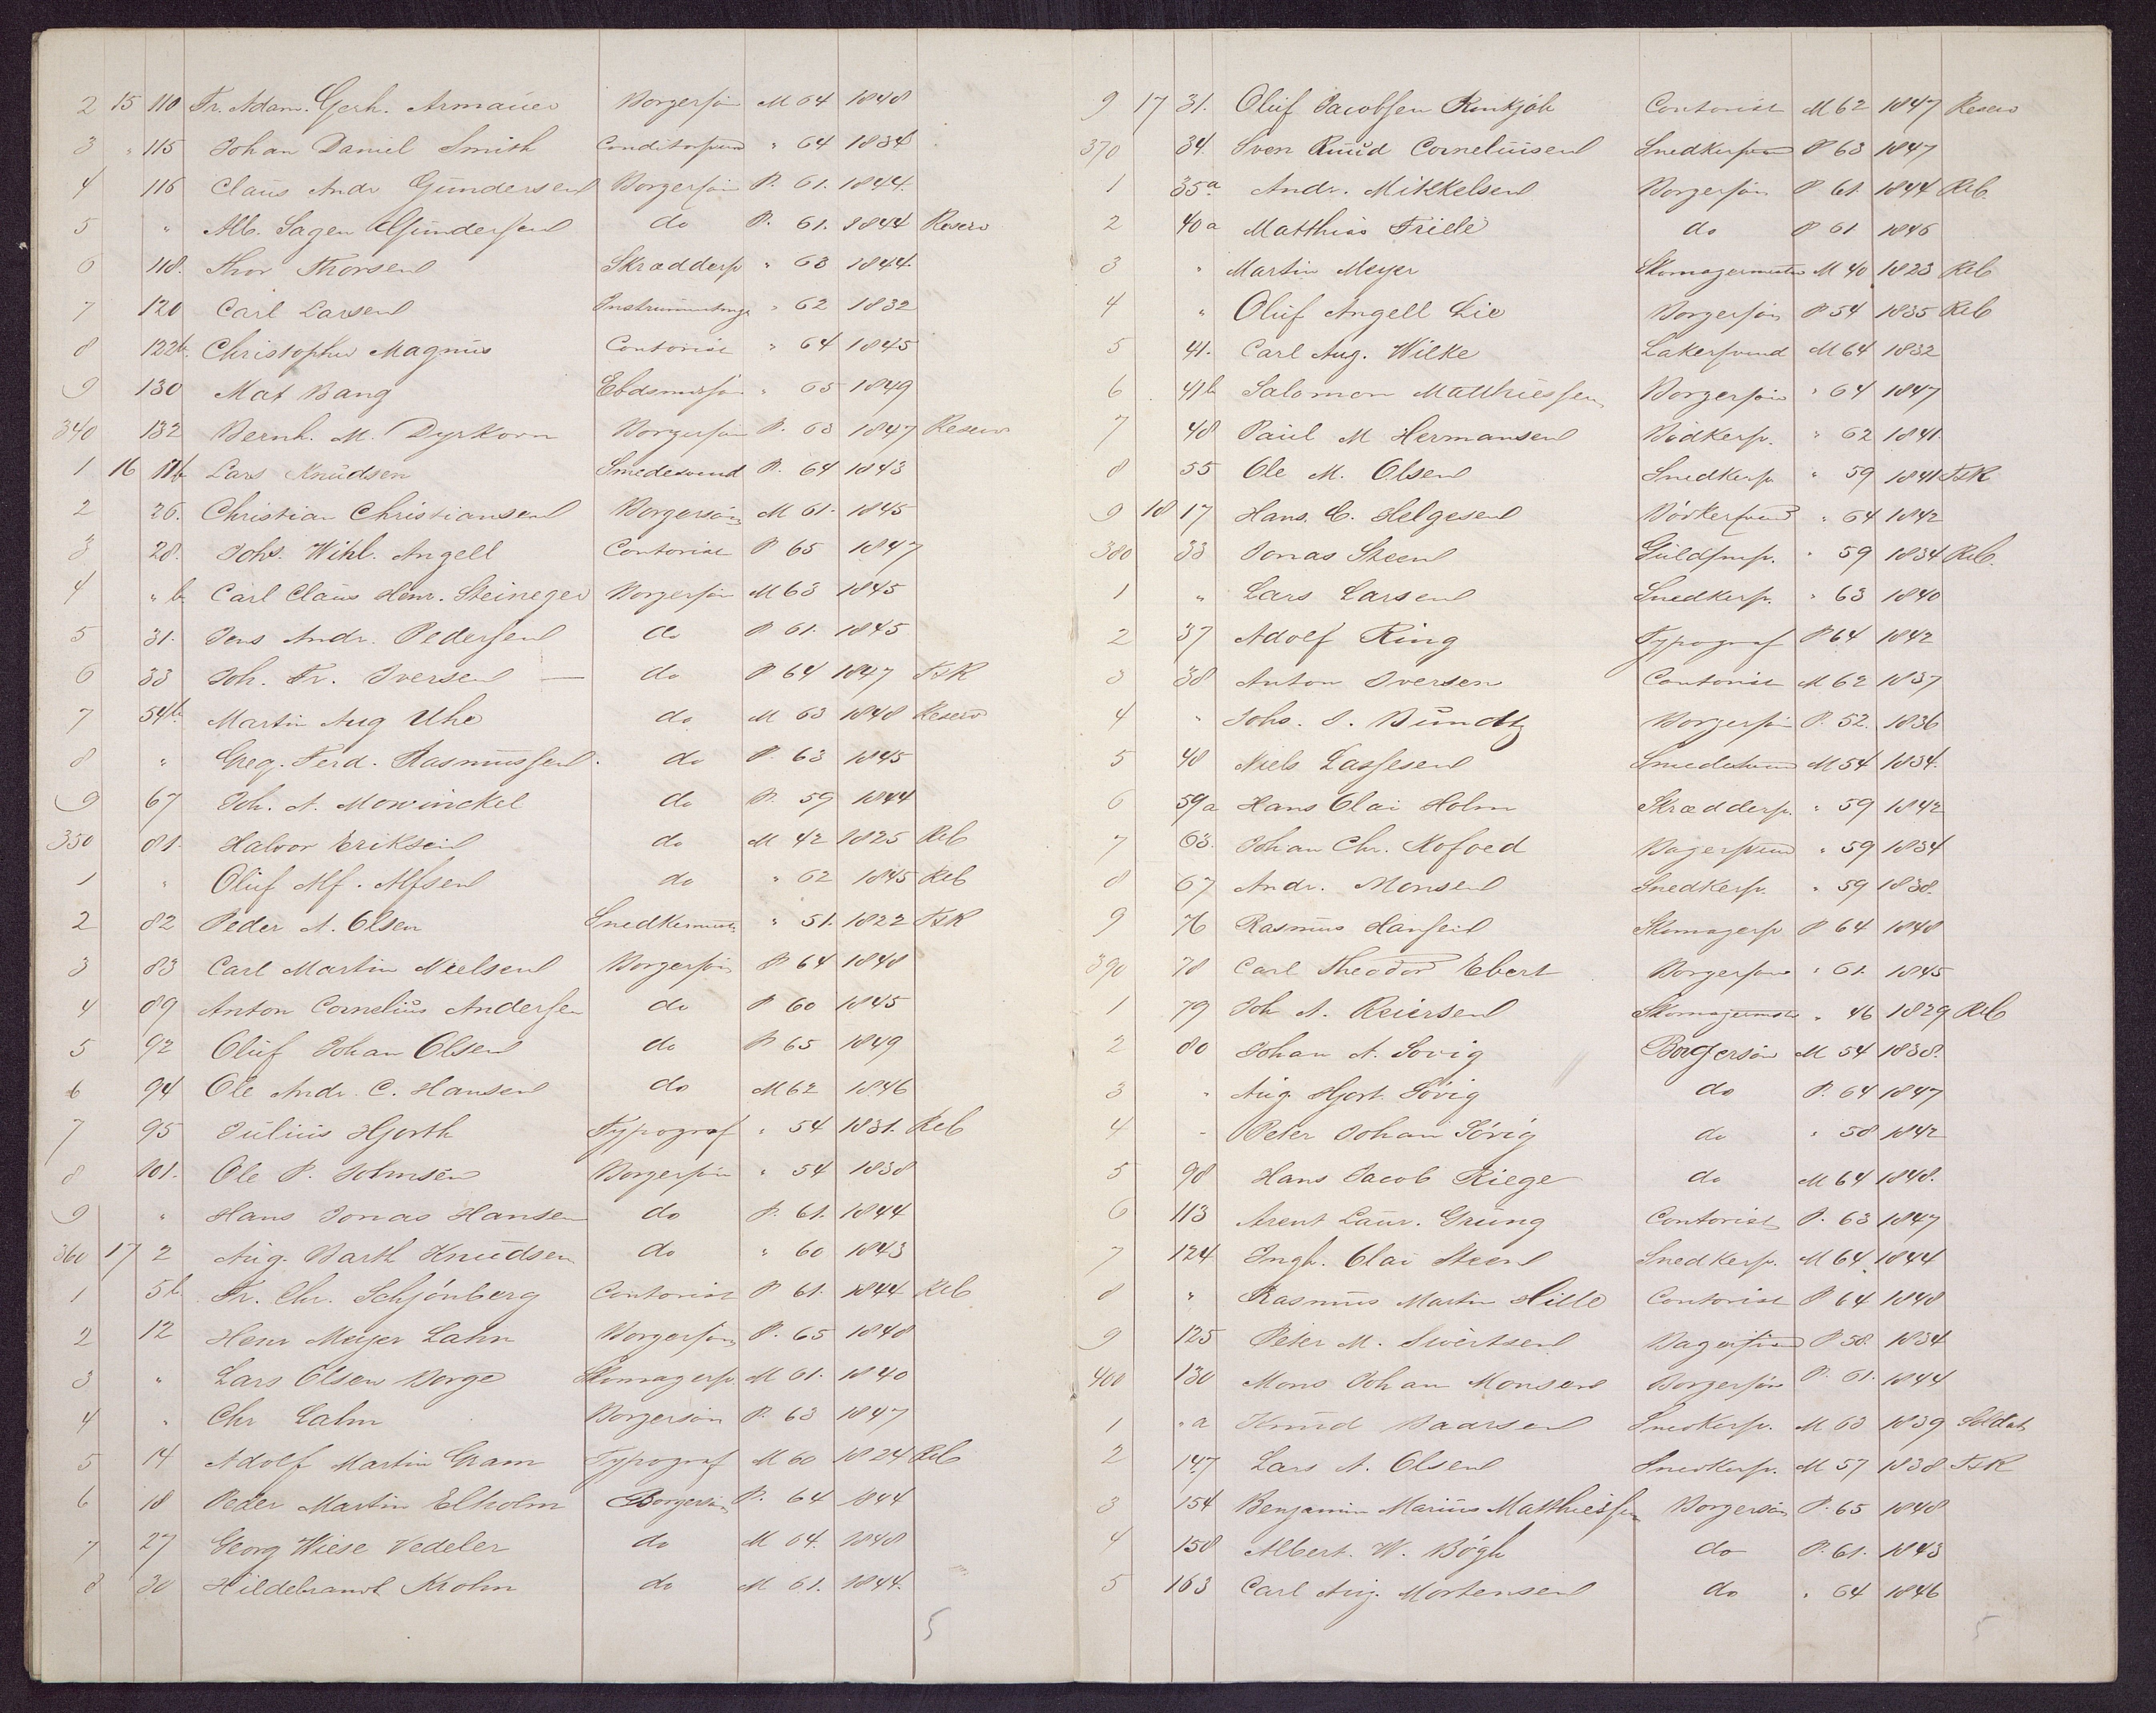 2 15 110 Fr. Adam. Gerh. Armauer Borgersøn M 64 1848
3 " 115 Johan Daniel Smith Conditorsvend " 64 1834
4 116 Claus Andr Gundersen Borgersøn P. 61. 1844.
5 " Alb. Sagen Gundersen do P. 61. 1844 Reserv
6 118. Thor Thorsen Skrædders " 63 1844.
7 120 Carl Larsen Instrumentmg " 62 1832
8 122b. Christopher Magnus Contorist " 64 1845
9 130 Mat Bang Ebdsmdsøn " 65 1849
340 132 Bernh. M. Dyrkorn Borgersøn P. 63 1847 Reserv
1 16 11b Lars Knudsen Smedesvend P. 64 1843
2 26. Christian Christiansen Borgersøn M 61. 1845
3 28. Johs. Wihl. Angell Contorist P 65 1847
4 " b. Carl Claus Henr. Steineger Borgersøn M 63 1845
5 31. Jens Andr. Pedersen do P. 61. 1845
6 33 Joh. Fr. Iversen — do P 64 1847 FsK
7 54b. Martin Aug Uhe do M 63 1848 Reserv
8 " Greg. Ferd. Rasmussen. do P. 63 1845
9 67 Joh. A. Mowinckel do P. 59 1844
350 81. Halvor Eriksen do M 42 1825 Reb
1 " Oluf Alf. Alfsen do " 62 1845 Reb
2 82 Peder A. Olsen Snedkermest " 51. 1822 FsK
3 83 Carl Martin Nielsen Borgersøn P 64 1848
4 89 Anton Cornelius Andersen do P 60 1845
5 92 Oluf Johan Olsen do P 65 1849
6 94 Ole Andr. C. Hansen do M 62 1846
7 95 Julius Hjorth Typograf " 54 1831. Reb
8 101. Ole P. Johnsen Borgersøn " 54 1838
9 " Hans Jonas Hansen do P. 61. 1844
360 17 2 Aug. Barth Knudsen do " 60 1843
1 5b. Fr. Chr. Schjønberg Contorist P 61. 1844 Reb
2 12 Henr Meyer Lahn Borgersøn P. 65 1848
3 " Lars Olsen Borge Skomagersv. M 61. 1840
4 " Chr Lahn Borgersøn P. 63 1847
5 14 Adolf Martin Gram Typograf M 60 1824 Reb
6 18 Peder Martin Elholm Borgersøn P. 64 1844
7 27 Georg Wiese Vedeler do M 64. 1848
8 30 Hildebrandt Krohn do M 61. 1844.
5
9 17 31. Oluf Jacobsen Contorist M 62 1847 Reserv
370 34. Sven Ruud Corneliusen Snedkersvend P 63 1847
1 35a Andr. Mikkelsen Borgersøn P. 61. 1844 Reb.
2 40a Matthias Friele do P 61 1846
3 " Martin Meyer Skomagermester M 40 1823 Reb
4 " Oluf Angell Lie Borgersøn P 54 1835 Reb
5 41. Carl Aug. Wilke Lakersvend M 64 1832
6 41b Salomon Matthiessen Borgersøn " 64 1847
7 48 Paul M Hermansen Bødkersv. " 62 1841.
8 55 Ole M. Olsen Snedkersv " 59 1841 FsK
9 18 17 Hans. C. Helgesen Bødkersvend " 64 1842
380 33 Jonas Steen Guldsmsv. " 59 1834 Reb.
1 " Lars Larsen Snedkersv. " 63 1840
2 37 Adolf Ring Typograf P 64 1842
3 38 Anton Iversen Contorist M 62 1837
4 " Johs. S. Bundtz Borgersøn P. 52. 1836
5 48 Niels Lassesen Smedesvend M 54 1834.
6 59a Hans Olai Holm Skræddersv. " 59 1842
7 63. Johan Chr. Kofoed Bagersvend " 59 1834
8 67 Andr. Monsen Snedkersv. " 59 1838.
9 76 Rasmus Hansen Skomagersv P 64 1848
390 78 Carl Theodor Ebert Borgersøn " 61. 1845
1 79 Joh A. Reiersen Skomagermest " 46 1829 Reb
2 80 Johan A. Sørig Borgersøn M 54 1838.
3 " Aug. Hjort. Sørig do P. 64 1847
4 " Peter Johan Sørig do " 58 1842
5 98 Hans Jacob Riege do M 64 1848.
6 113 Arent Laur. Grung Contorist P. 63 1847
7 124 Ingb. Olai Steen Snedkersv. M 64. 1844
8 " Rasmus Martin Hille Contorist P 64 1848
9 125 Peter M. Sivertsen Bagersvend P 58. 1834
400 130 Mons Johan Monsen Borgersøn P. 61. 1844
1 " a Knud Baarsen Snedkersv. M 63 1839 Soldat
2 147 Lars A. Olsen Snedkersv. M 57 1838 FsK
3 154 Benjamin Marius Matthiessen Borgersøn P. 65 1848
4 158 Albert. W. Bøgh do P. 61. 1843
5 163 Carl Aug. Mortensen do " 64 1846
5